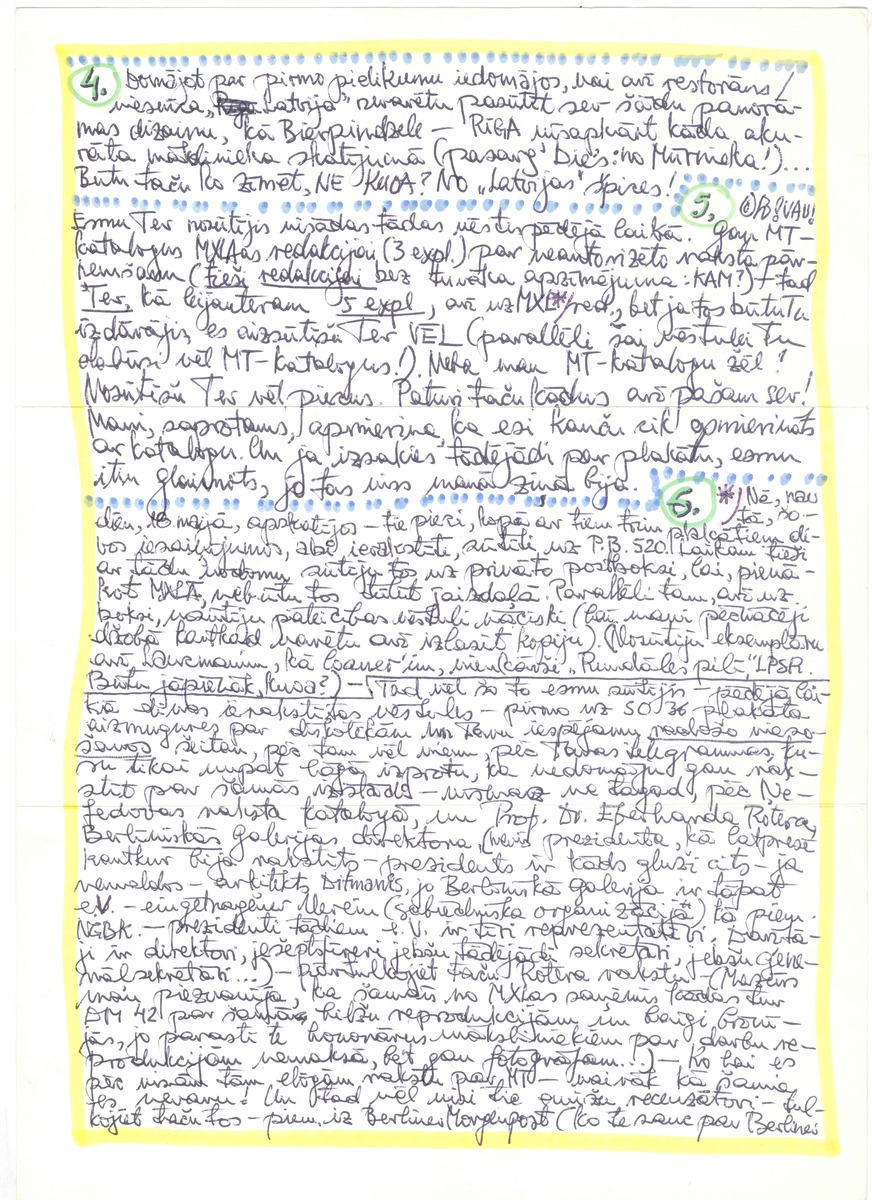 4. Domājot par pirmo pielikumu iedomājos, vai arī restorāns/
viesnīca „Latvija" nevarētu pasūtīt sev šādu panorā-
mas dizainu, kā Bierpinsele — RĪGA visapkārt kāda aku-
rāta mākslinieka skatījumā (pasarg' Dies: no Mūrnieka!)...
Būtu taču ko zīmēt, NE KUOA? NO „Latvijas" spices!
5.
Esmu Tev nosūtījis visādas tādas vēstis pēdējā laikā. Gan MT-
katalogus MXLAas redakcijai (3 expl.) par neautorizēto raksta pār-
ņemšanu (tieši redakcijai bez tuvāka apzīmējuma: KAM?) — tad
Tev, kā lejauteram 5 expl, arī uz MXL* red., bet ja tos būtu Tu
izdāvājis, es aizsūtīšu Tev VĒL (parallēli šai vēstulei Tu
dabūsi vēl MT-katalogus!). Neba man MT-katalogu žēl!
Nosūtīšu Tev vēl piecus. Paturi taču kādus arī pašam sev!
Mani, saprotams, apmierina, ka esi kaut cik apmierināts
ar katalogu. Un ja izsakies tādējādi par plakātu, esmu
itin glaimots, jo tas viss manā ziņā bija.
6. * Nē, nav
tā, šo-
dien, 18 maijā, apskatījos — tie pieci, kopā ar tiem trim plakātiem di-
vos iesaiņojumos, abi ierakstīti, sūtīti uz P.B. 520. Laikam tieši
ar tādu nodomu sūtīju tos uz privāto postboksi, lai, pienā-
kot MXLA, nebūtu tos tūlīt jāizdala. Parallēli tam, arī uz
boksi, nosūtīju pateicības vēstuli vāciski (lai mani pēcnācēji
dzīvē kautkad varētu arī izlasīt kopiju). (Nosūtīju eksemplāru
arī Lancmanim, kā loaner'im, vienkārši „Rundāles pilī", LPSR.
Būtu jāpienāk, kuoa?) — Tad vēl šo to esmu sūtījis — pēdējā lai-
kā divas ierakstītas vēstules — pirmo uz SO 36 plakāta
aizmugures par diskotēkām un Tavu iespējamu radošo vieso-
šanos šeitan, pēc tam vēl vienu, pēc Tavas telegrammas, ku-
ru tikai nupat lāgā izprotu, ka nedomāju gan rak-
stīt par šamās izstādi — vismaz ne tagad, pēc Ņe-
fedovas raksta katalogā, un Prof. Dr. Eberharda Rotera,
Berlīniskās Galerijas direktora, (nevis prezidenta, kā latpresē
kautkur bija rakstīts — prezidents ir kāds gluži cits — ja
nemaldos — arkitekts Ditmanis, jo Berlīniskā Galerija ir tāpat
e.V. — eingetragener Verein (sabiedriska organizācija) kā piem.
NGBK. — prezidenti tādiem e.V. ir tīri reprezentatīvi. Darītā-
ji ir direktori, jeb
sekretāri, jebšu gene-
rālsekretāri...) — pārtulkojiet taču Rotera rakstu — (Mazais
man piezvanīja, ka šamais no MXLas saņēmis kādas tur
DM 42 par šamās bilžu reprodukcijām, un baigi brīnī-
jās, jo parasti te honorārus māksliniekiem par darbu re-
produkcijām nemaksā, bet gan fotogrāfam...) — Ko lai es
pēc visām tām elogām rakstu par MT — vairāk kā šamie
es nevaru! Un tad vēl visi tie avīžu recenzētāji — tul-
kojiet taču tos — piem. iz Berliner Morgenpost (ko te sauc par Berliner